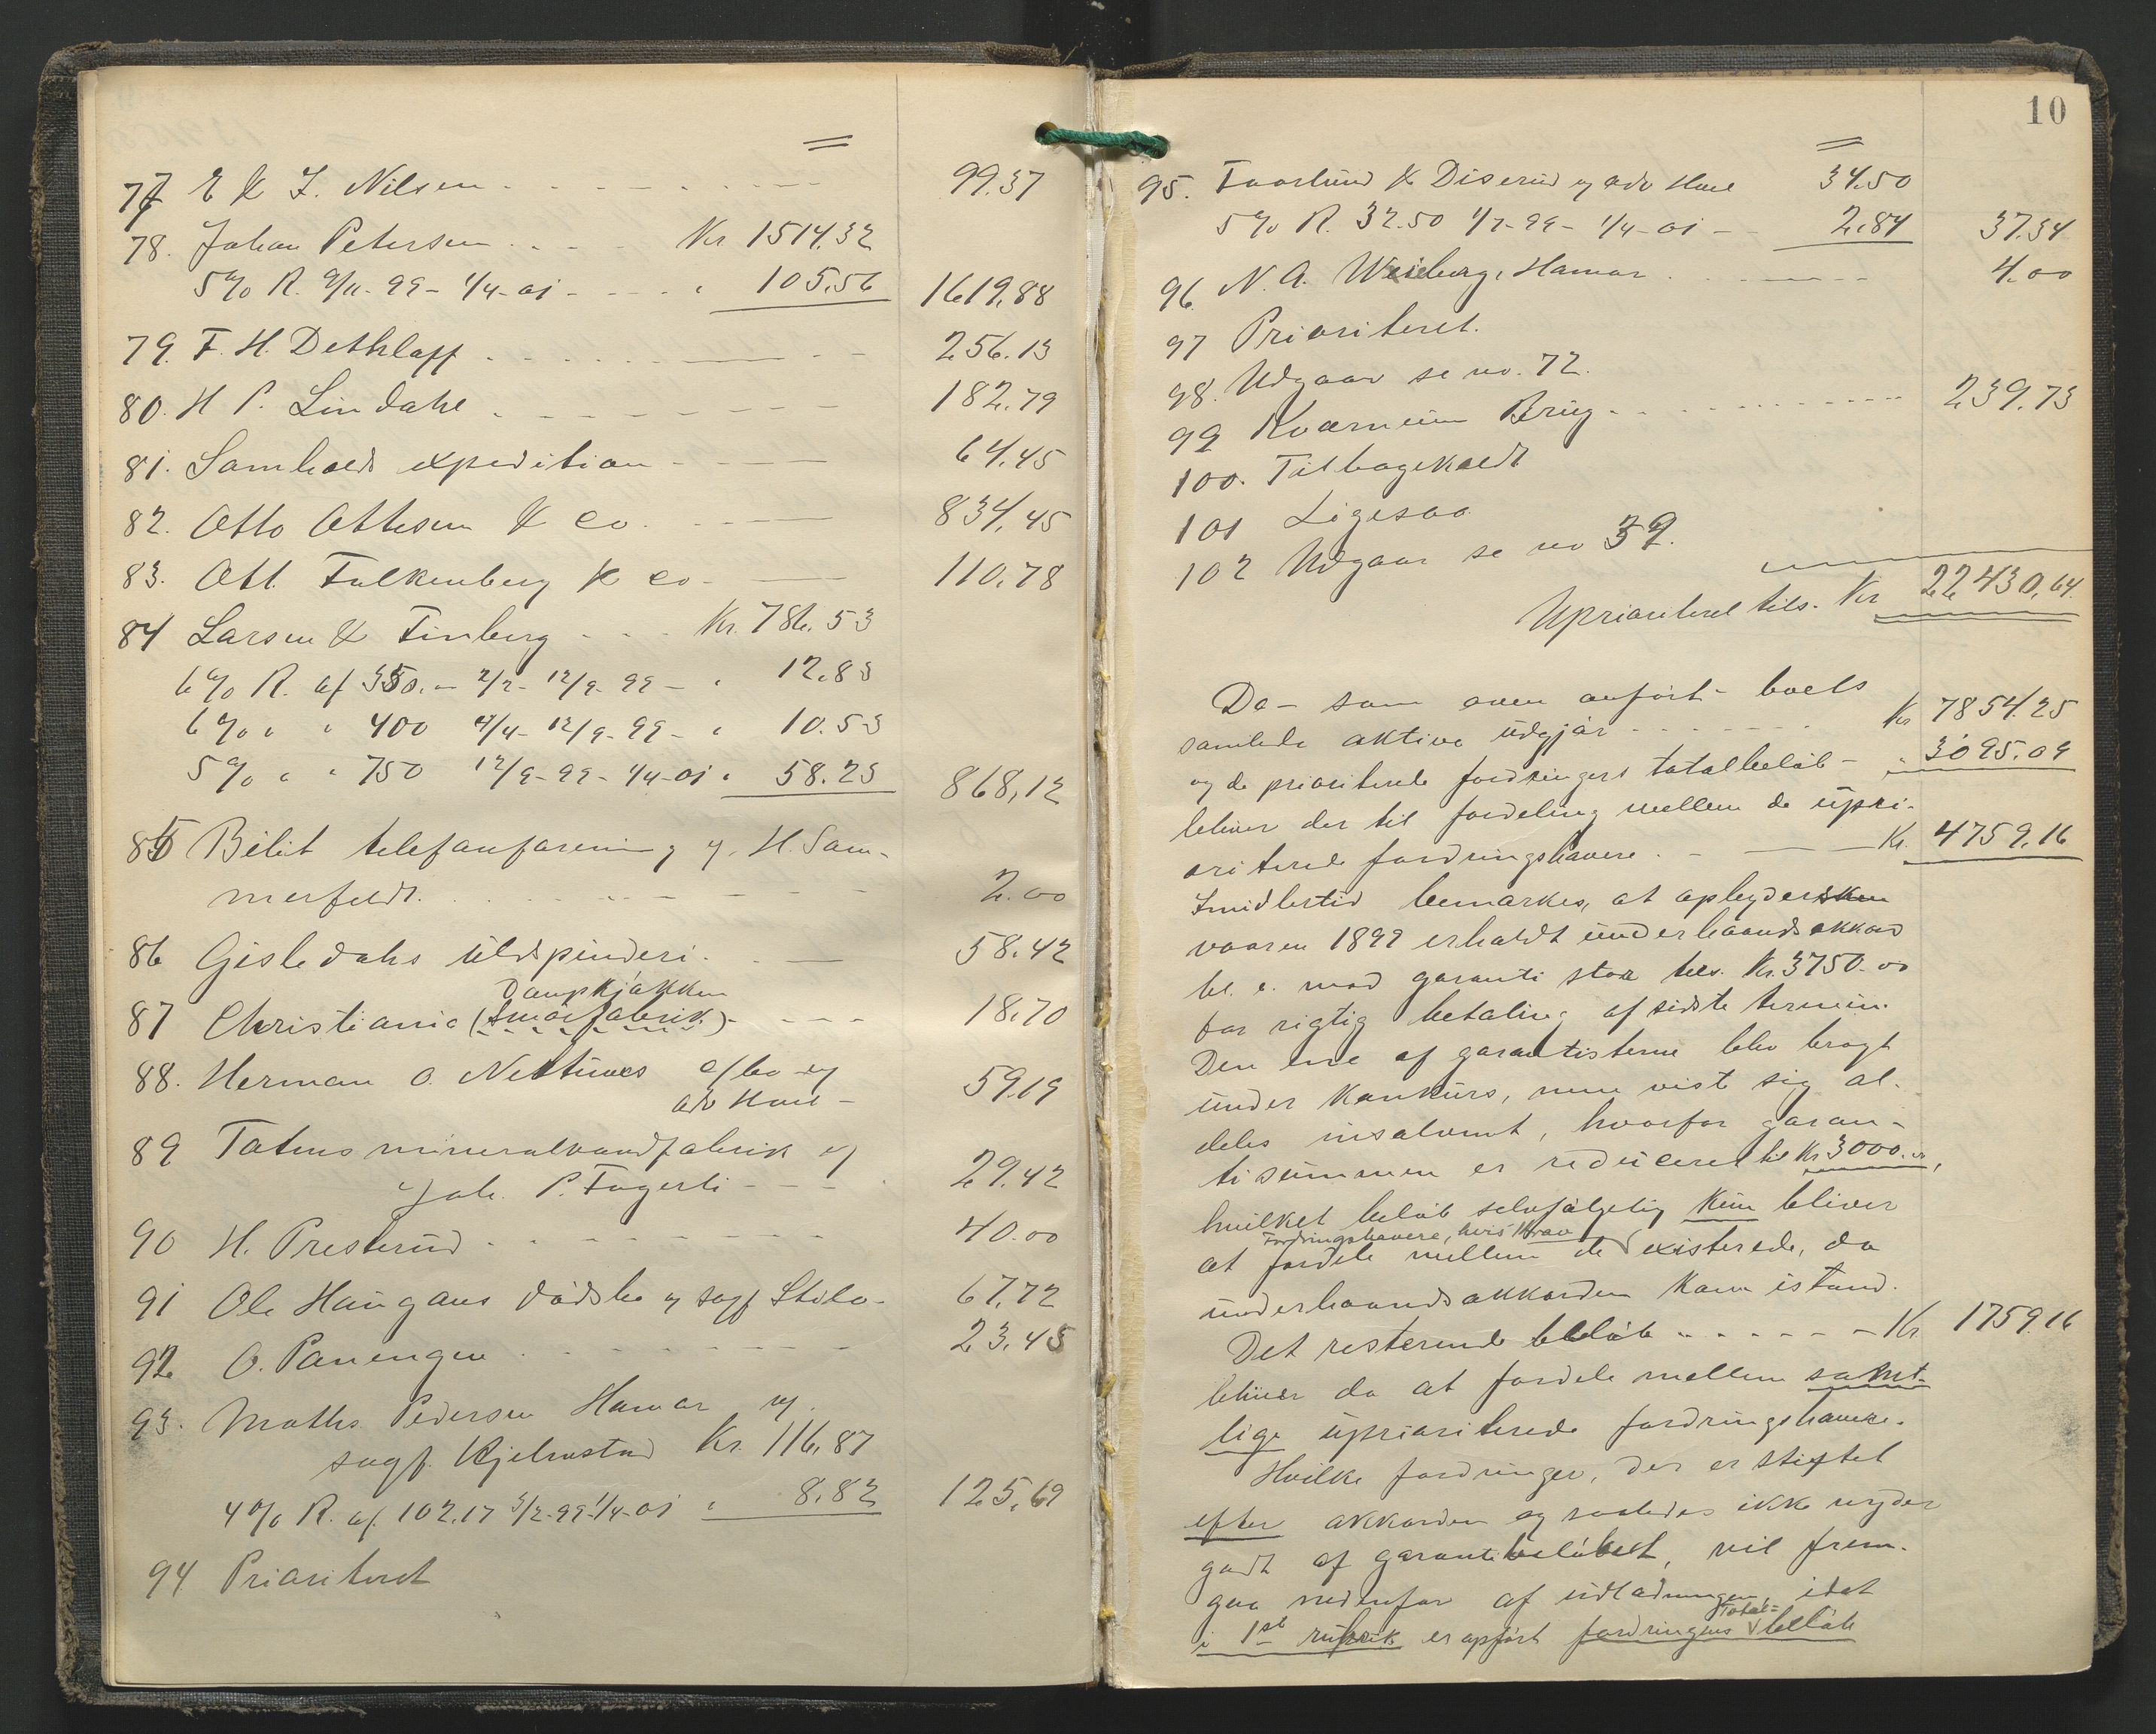 77 E & F. Nilsen - - - - - 99.37
78. Johan Petersen - - - Kr 1514.32
5% R. 9/11-99 - 1/4-01 - - - " 105.56 1619.88
79. F. H. Dethlaff - - - 256.13
80. H P. Lindahl - - - 182.79
81. Samhold expedition - - - 64.45
82. Otto Ottesen & Co. - - - 834.45
83. Ott. Falkenberg & Co - - 110.78
84 Larsen & Finberg - - - Kr. 786.53
6% R. af 350.- 2/2 - 12/9-99 - " 12.83
6% " " 400 4/4 - 12/9-99 - " 10.53
5% " " 750 12/9-99 - 1/4-01 " 58.23 868.12
85 Bilit telefonforening v. H. Som-
merfeldt. - - - 2.00
86 Gisledahs uldspinderi. - - 58.42
Dampkjøkken
87 Christiania (Smørfabrik) - - - 18.70
88. Herman O. Nettums efbo v
adv Huul - 59.19
89 Totens mineralvandfabrik v
Joh. P. Fagerli - - - 29.42
90 H. Presterud - - - 40.00
91 Ole Haugans dødsbo v sagf Stolo- 67.72
92 O. Panengen - - - 23.43
93. Maths. Pedersen Hamar v.
sagf. Kjelmstad Kr. 116.87
4% R. af 102.17 3/2-99-1/4-01 " 8.82 125.69
94 Prioriteret
10
95. Faaslund & Diserud v adv Huul 34.50
5% R. 32.50 1/7-99 - 1/4-01 - - 2.84 37.34
96. N. A. Weiberg, Hamar - - - 4.00
97 Prioriteret.
98. Udgaar se no. 72.
99 Kværnum Brug - - - 239.73
100. Tilbagekaldt
101 Ligesaa
102 Udgaar se no 39.
Uprioriteret tils. Kr 22430.64.
Da - som oven anført - boets
samlede aktiva udgjør - - - Kr 7854.25
og de prioriterede fordringers totalbeløb - " 3095.09
bliver der til fordeling mellem de upri-
oriterede fordringshavere - - - Kr. 4759.16
Imidlertid bemærkes, at opbyderen
vaaren 1899 erholdt underhaandsakkord
bl. a. mod garanti stor tils. Kr. 3750.00
for rigtig betaling af sidste termin.
Den ene af garantisterne blev bragt
under konkurs, men viste sig al-
deles insolvent, hvorfor garan-
tisummen er reduceret til Kr 3000.00,
hvilket beløb selvfølgelig kun bliver
Fordringshavere, hvis krav
at fordele mellem de existerede, da
underhaandsakkorden kom istand.
Det resterende beløb - - - - - Kr 1759.16
bliver da at fordele mellem samt-
lige uprioriterede fordringshavere.
Hvilke fordringer, der er stiftet
efter akkorden og saaledes ikke nyder
godt af garantibeløbet, vil frem-
gaa nedenfor af udlodningen, idet
Total=
i 1st rubrik er opført fordringens beløb